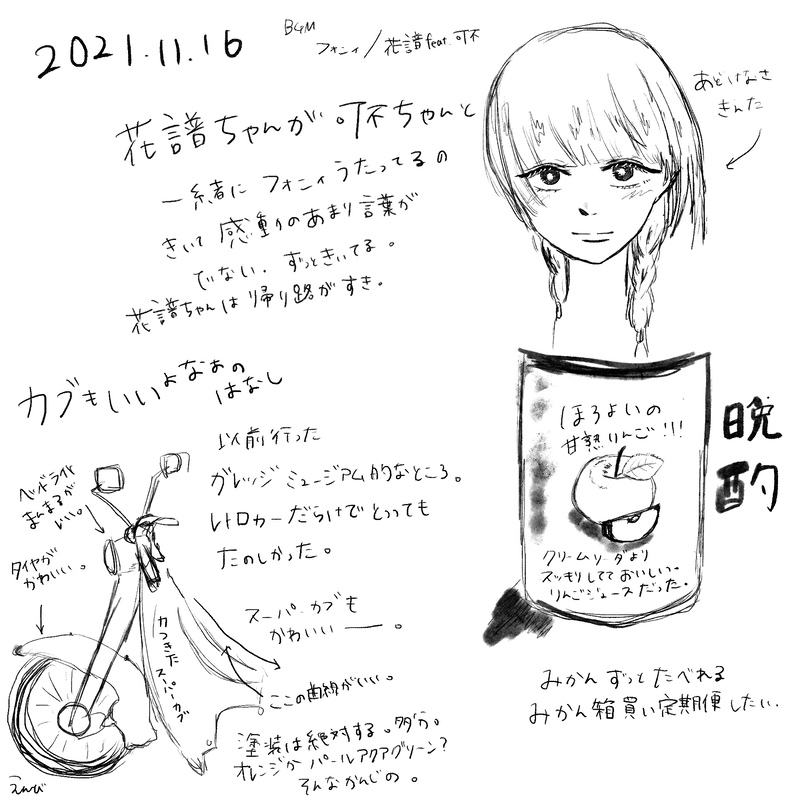 2021.11.16
BGM
フォニイ/花譜 feat.可不
花譜ちゃんが、可不ちゃんと
一緒に フォニイ うたってるの
きいて 感動のあまり言葉が
でない. ずっときいてる。
花譜ちゃんは 帰り路がすき。
あどけなさ
きんた
カブもいいよなぁの
はなし
以前行った
ガレッジ ミュージアム的なところ。
レトロカーだらけで とっても
たのしかった。
スーパーカブも
かわいい――。
ヘッドライト
まんまるが
いい。
タイヤが
かわいい。
カつきた
スーパーカブ
ここの曲線がいい。
塗装は絶対する。多分。
オレンジか パールアクアグリーン?
そんなかんじの。
えんび
ほろよいの
甘熟りんご!!!
クリームソーダより
スッキリしてて おいしい。
りんごジュースだった。
晩
酌
みかん ずっと たべれる
みかん箱買い定期便 したい.